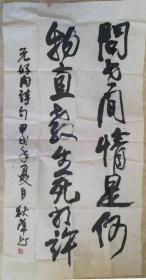 問世間情是何
物直教生死相許
元好問詩句甲戌年夏月